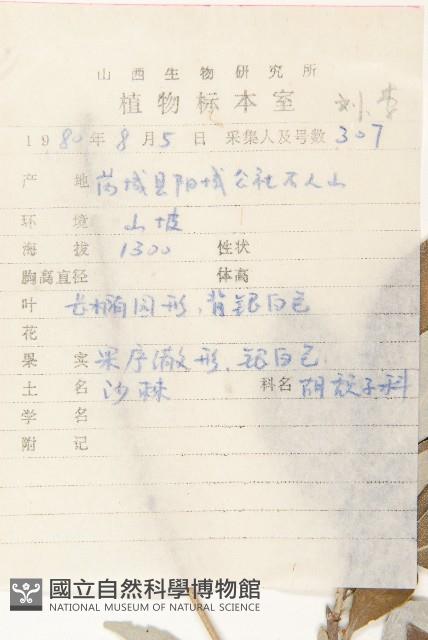 山西生物研究所
植物标本室 刘 李
1980年8月5日 采集人及号数 307
产地 芮城县阳城公社石人山
环境 山坡
海拔 1300 性状
胸高直径 体高
叶 长椭圆形,背银白色
花
果实 果序伞形、银白色
土名 沙棘 科名 胡颓子科
学名
附记
國立自然科學博物館
NATIONAL MUSEUM OF NATURAL SCIENCE